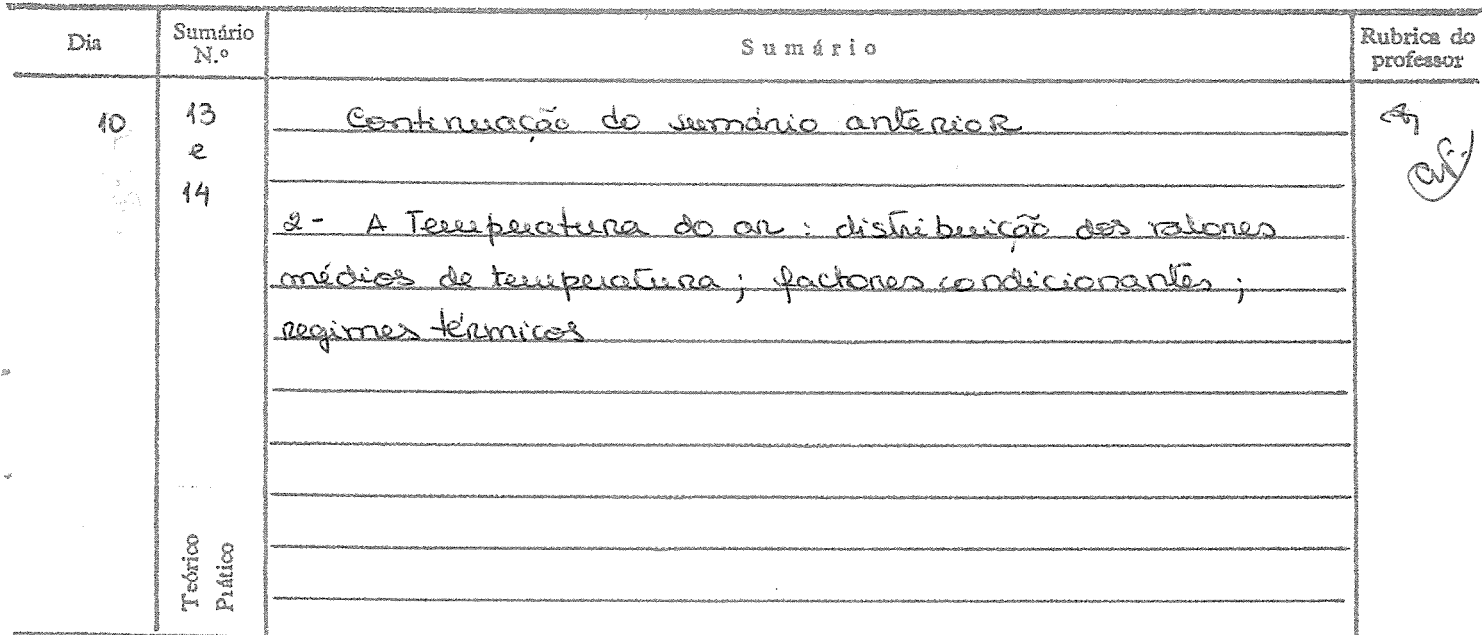 Dia Sumário N.º Sumário Rubrica do professor
10 13 e 14 Continuação do sumário anterior
2- A Temperatura do ar : distribuição dos valores
médios de temperatura ; factores condicionantes ;
regimes térmicos
Teórico
Prático